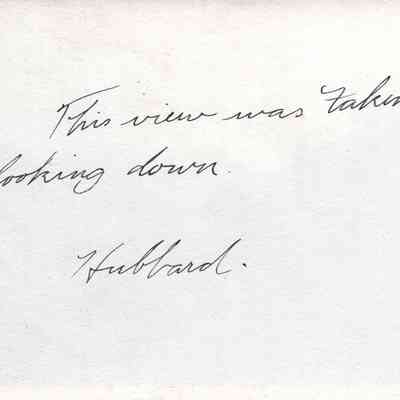 This view was taken
looking down.
Hubbard.